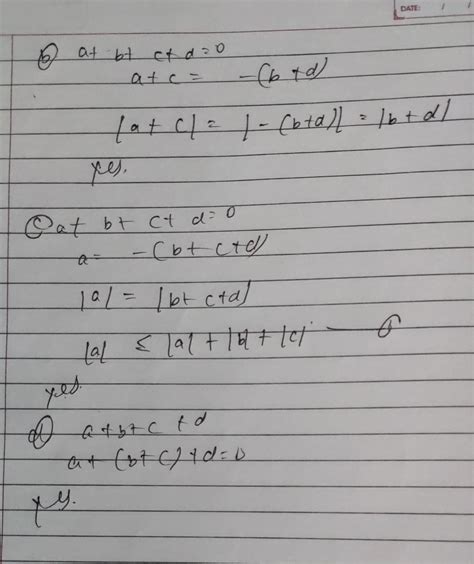 DATE: / /
(b) a+ b+ c+ d=0
a+c = -(b+d)
|a+ c| = |-(b+d)| = |b+d|
yes.
(c) a+ b+ c+ d=0
a= -(b+ c+d)
|a| = |b+c+d|
|a| ≤ |a|+|b|+|c|
yes.
(d) a+b+c +d
a+(b+c)+d=0
yes.